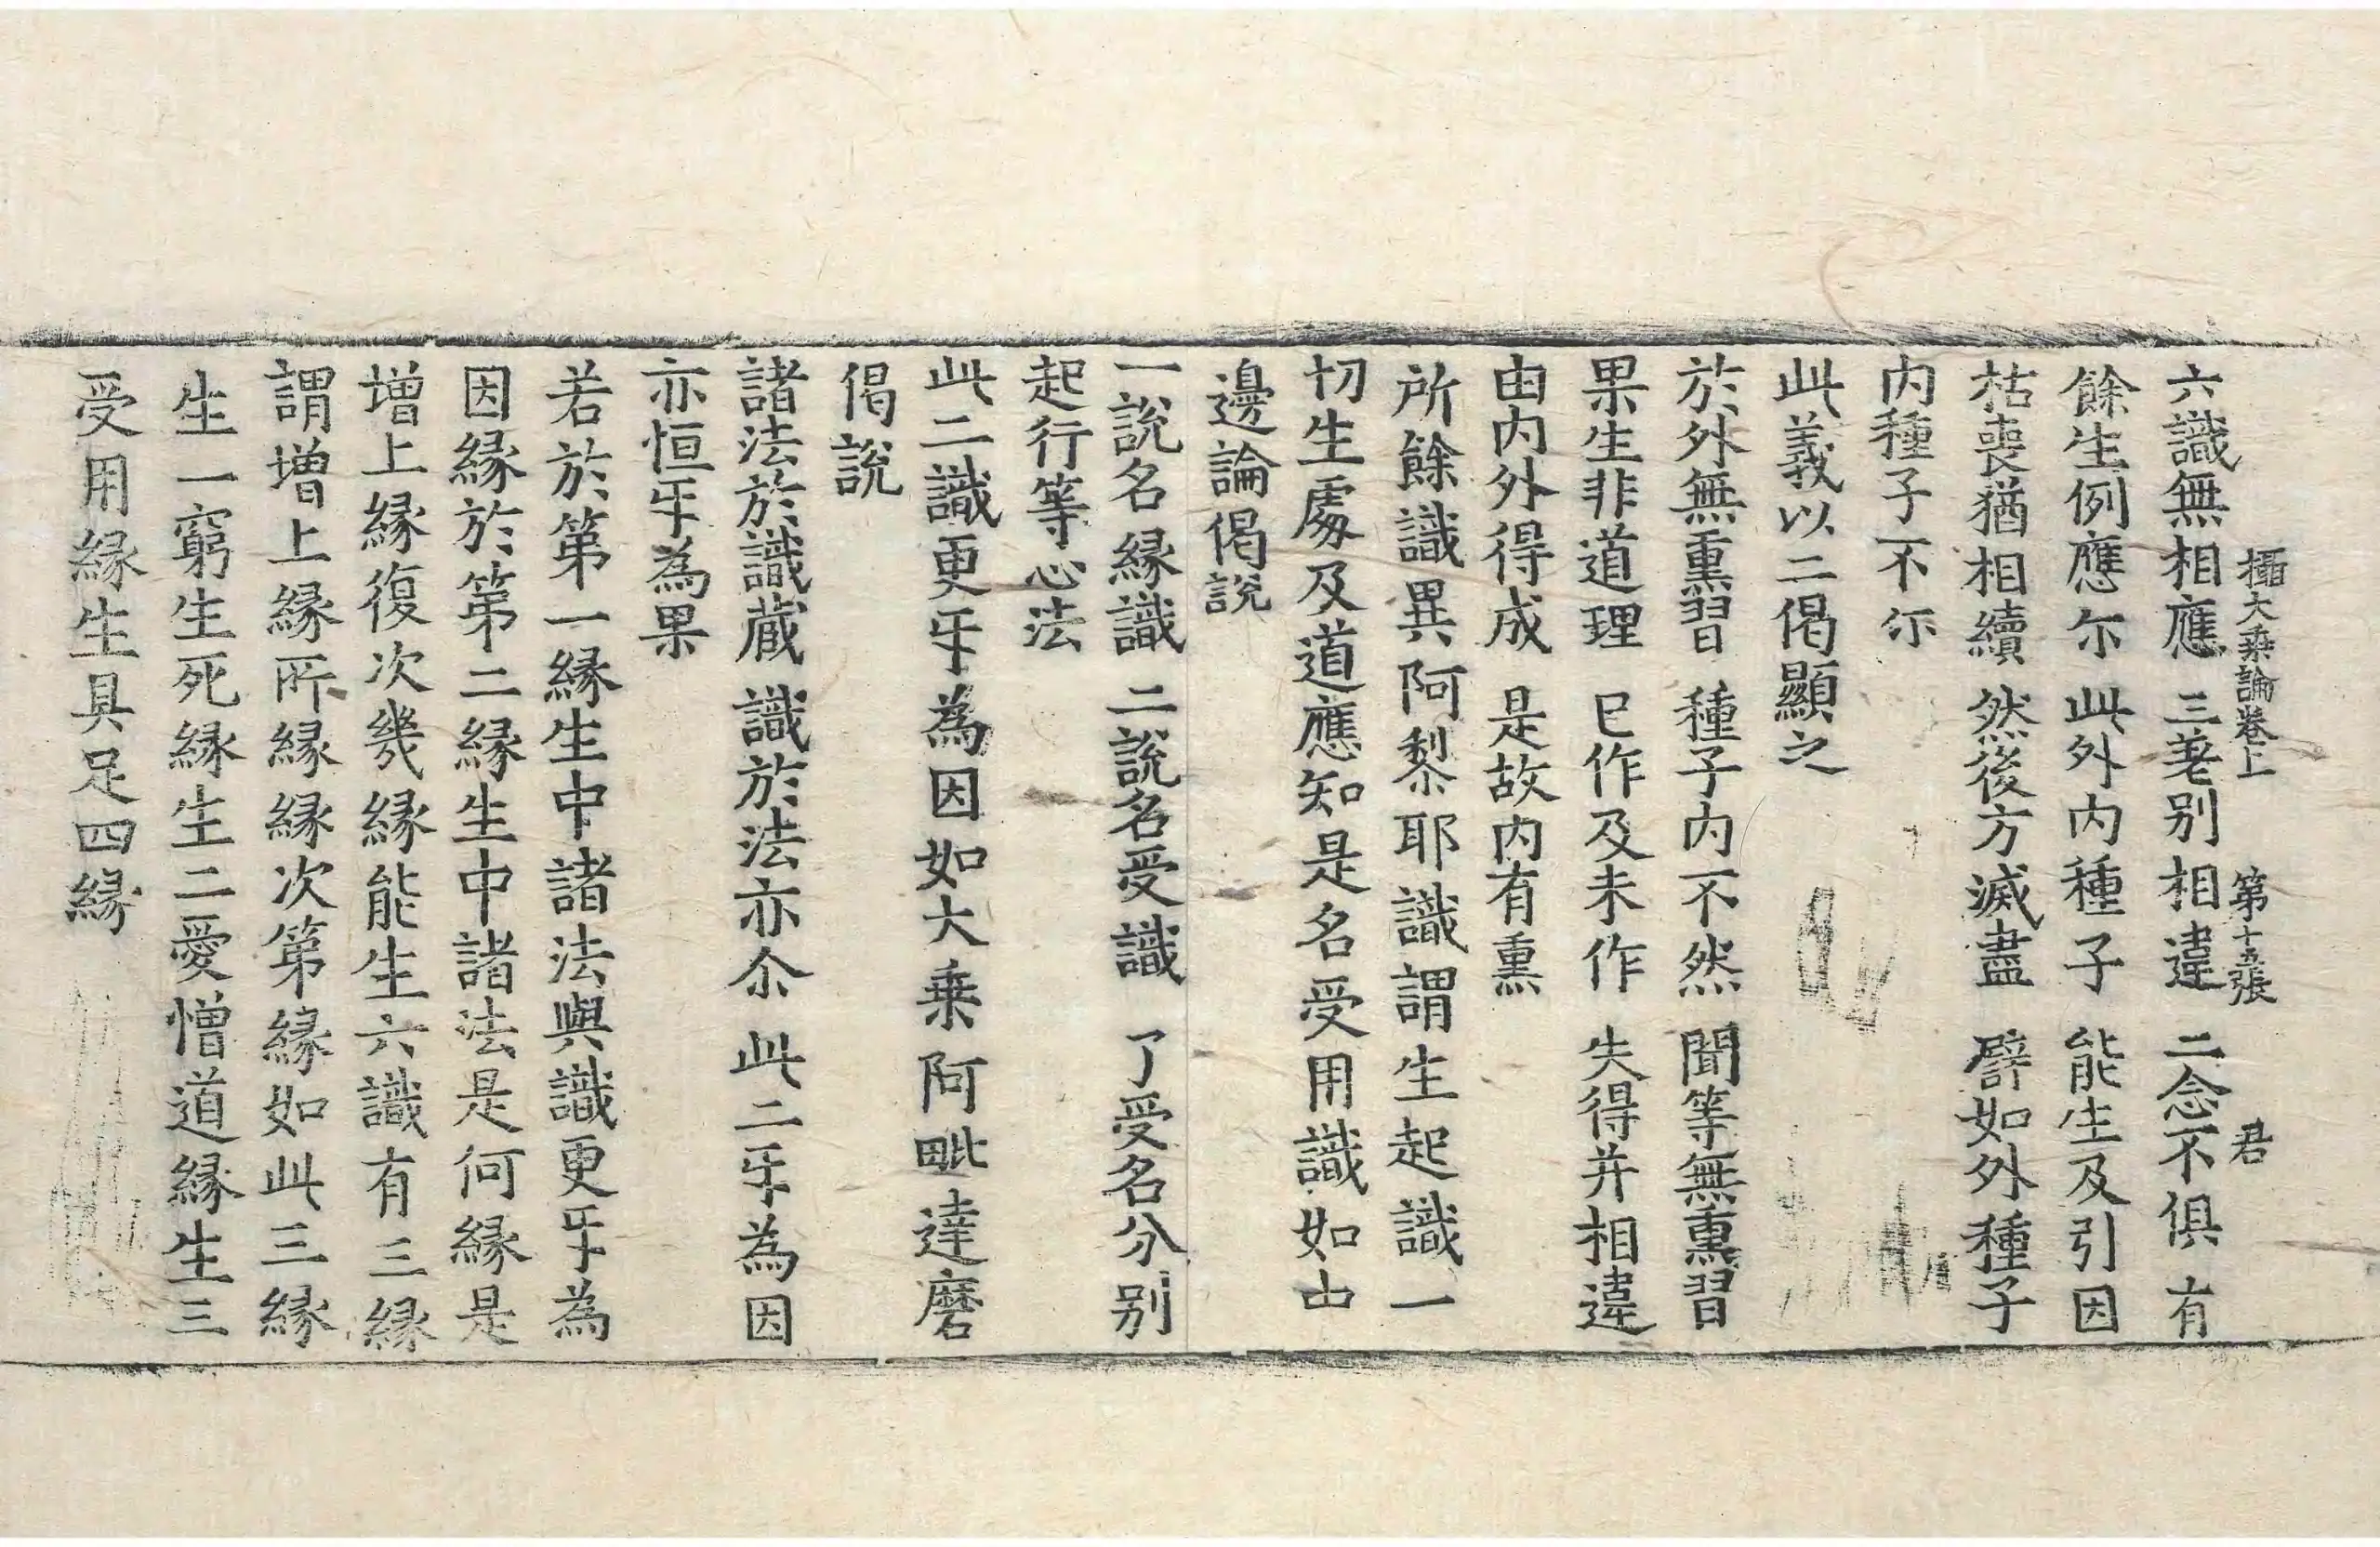 攝大乘論卷上 第十五張 君
六識無相應 三差別相違 二念不俱有
餘生例應尒 此外内種子 能生及引因
枯喪猶相續 然後方滅盡 譬如外種子
内種子不尒
此義以二偈顯之
於外無熏習 種子内不然 聞等無熏習
果生非道理 已作及未作 失得并相違
由内外得成 是故内有熏
所餘識異阿黎耶識謂生起識一
切生處及道應知是名受用識如中
邊論偈說
一說名縁識 二說名受識 了受名分別
起行等心法
此二識更㸦為因如大乗阿毗達磨
偈說
諸法於識蔵 識於法亦尒 此二㸦為因
亦恒㸦為果
若於第一縁生中諸法與識更㸦為
因縁於第二縁生中諸法是何縁是
増上縁復次幾縁能生六識有三縁
謂増上縁所縁縁次第縁如此三縁
生一窮生死縁生二愛憎道縁生三
受用縁生具足四縁